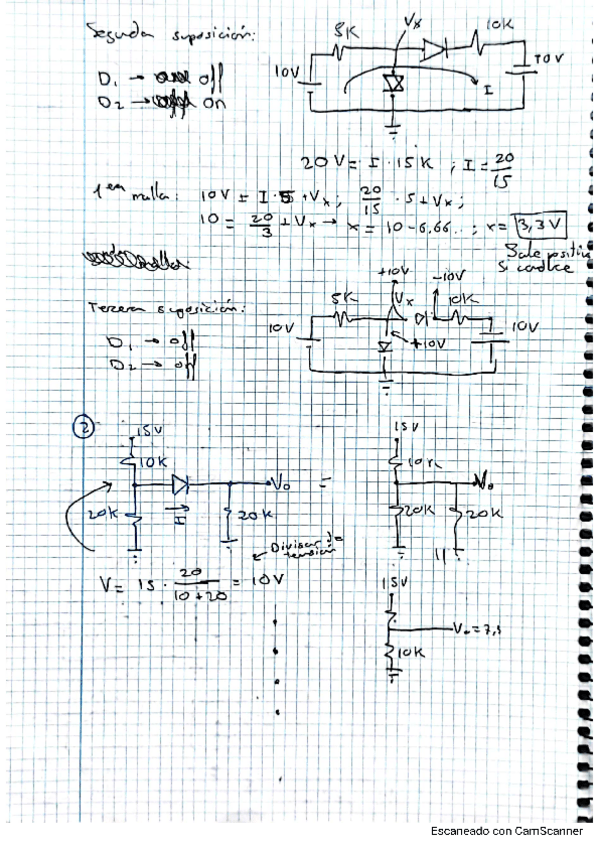 Segunda suposición:
D₁ → off
D₂ → on
5K
Vx
10K
10V
10V
I
20V = I · 15K ; I = 20/15
1era malla: 10V = I · 5 + Vx ; 20/15 · 5 + Vx ;
10 = 20/3 + Vx → x = 10 - 6,66.. ; x = 3,3V
Sale positivo
si conduce
Tercera suposición:
D₁ → off
D₂ → off
+10V
-10V
5K
Vx
10K
10V
+10V
10V
②
15V
10K
20K
I
Vo
20K
=
15V
10K
Vo
20K
20K
Divisor de
tensión
V = 15 · 20/(10+20) = 10V
15V
Vo = 7,5
10K
Escaneado con CamScanner